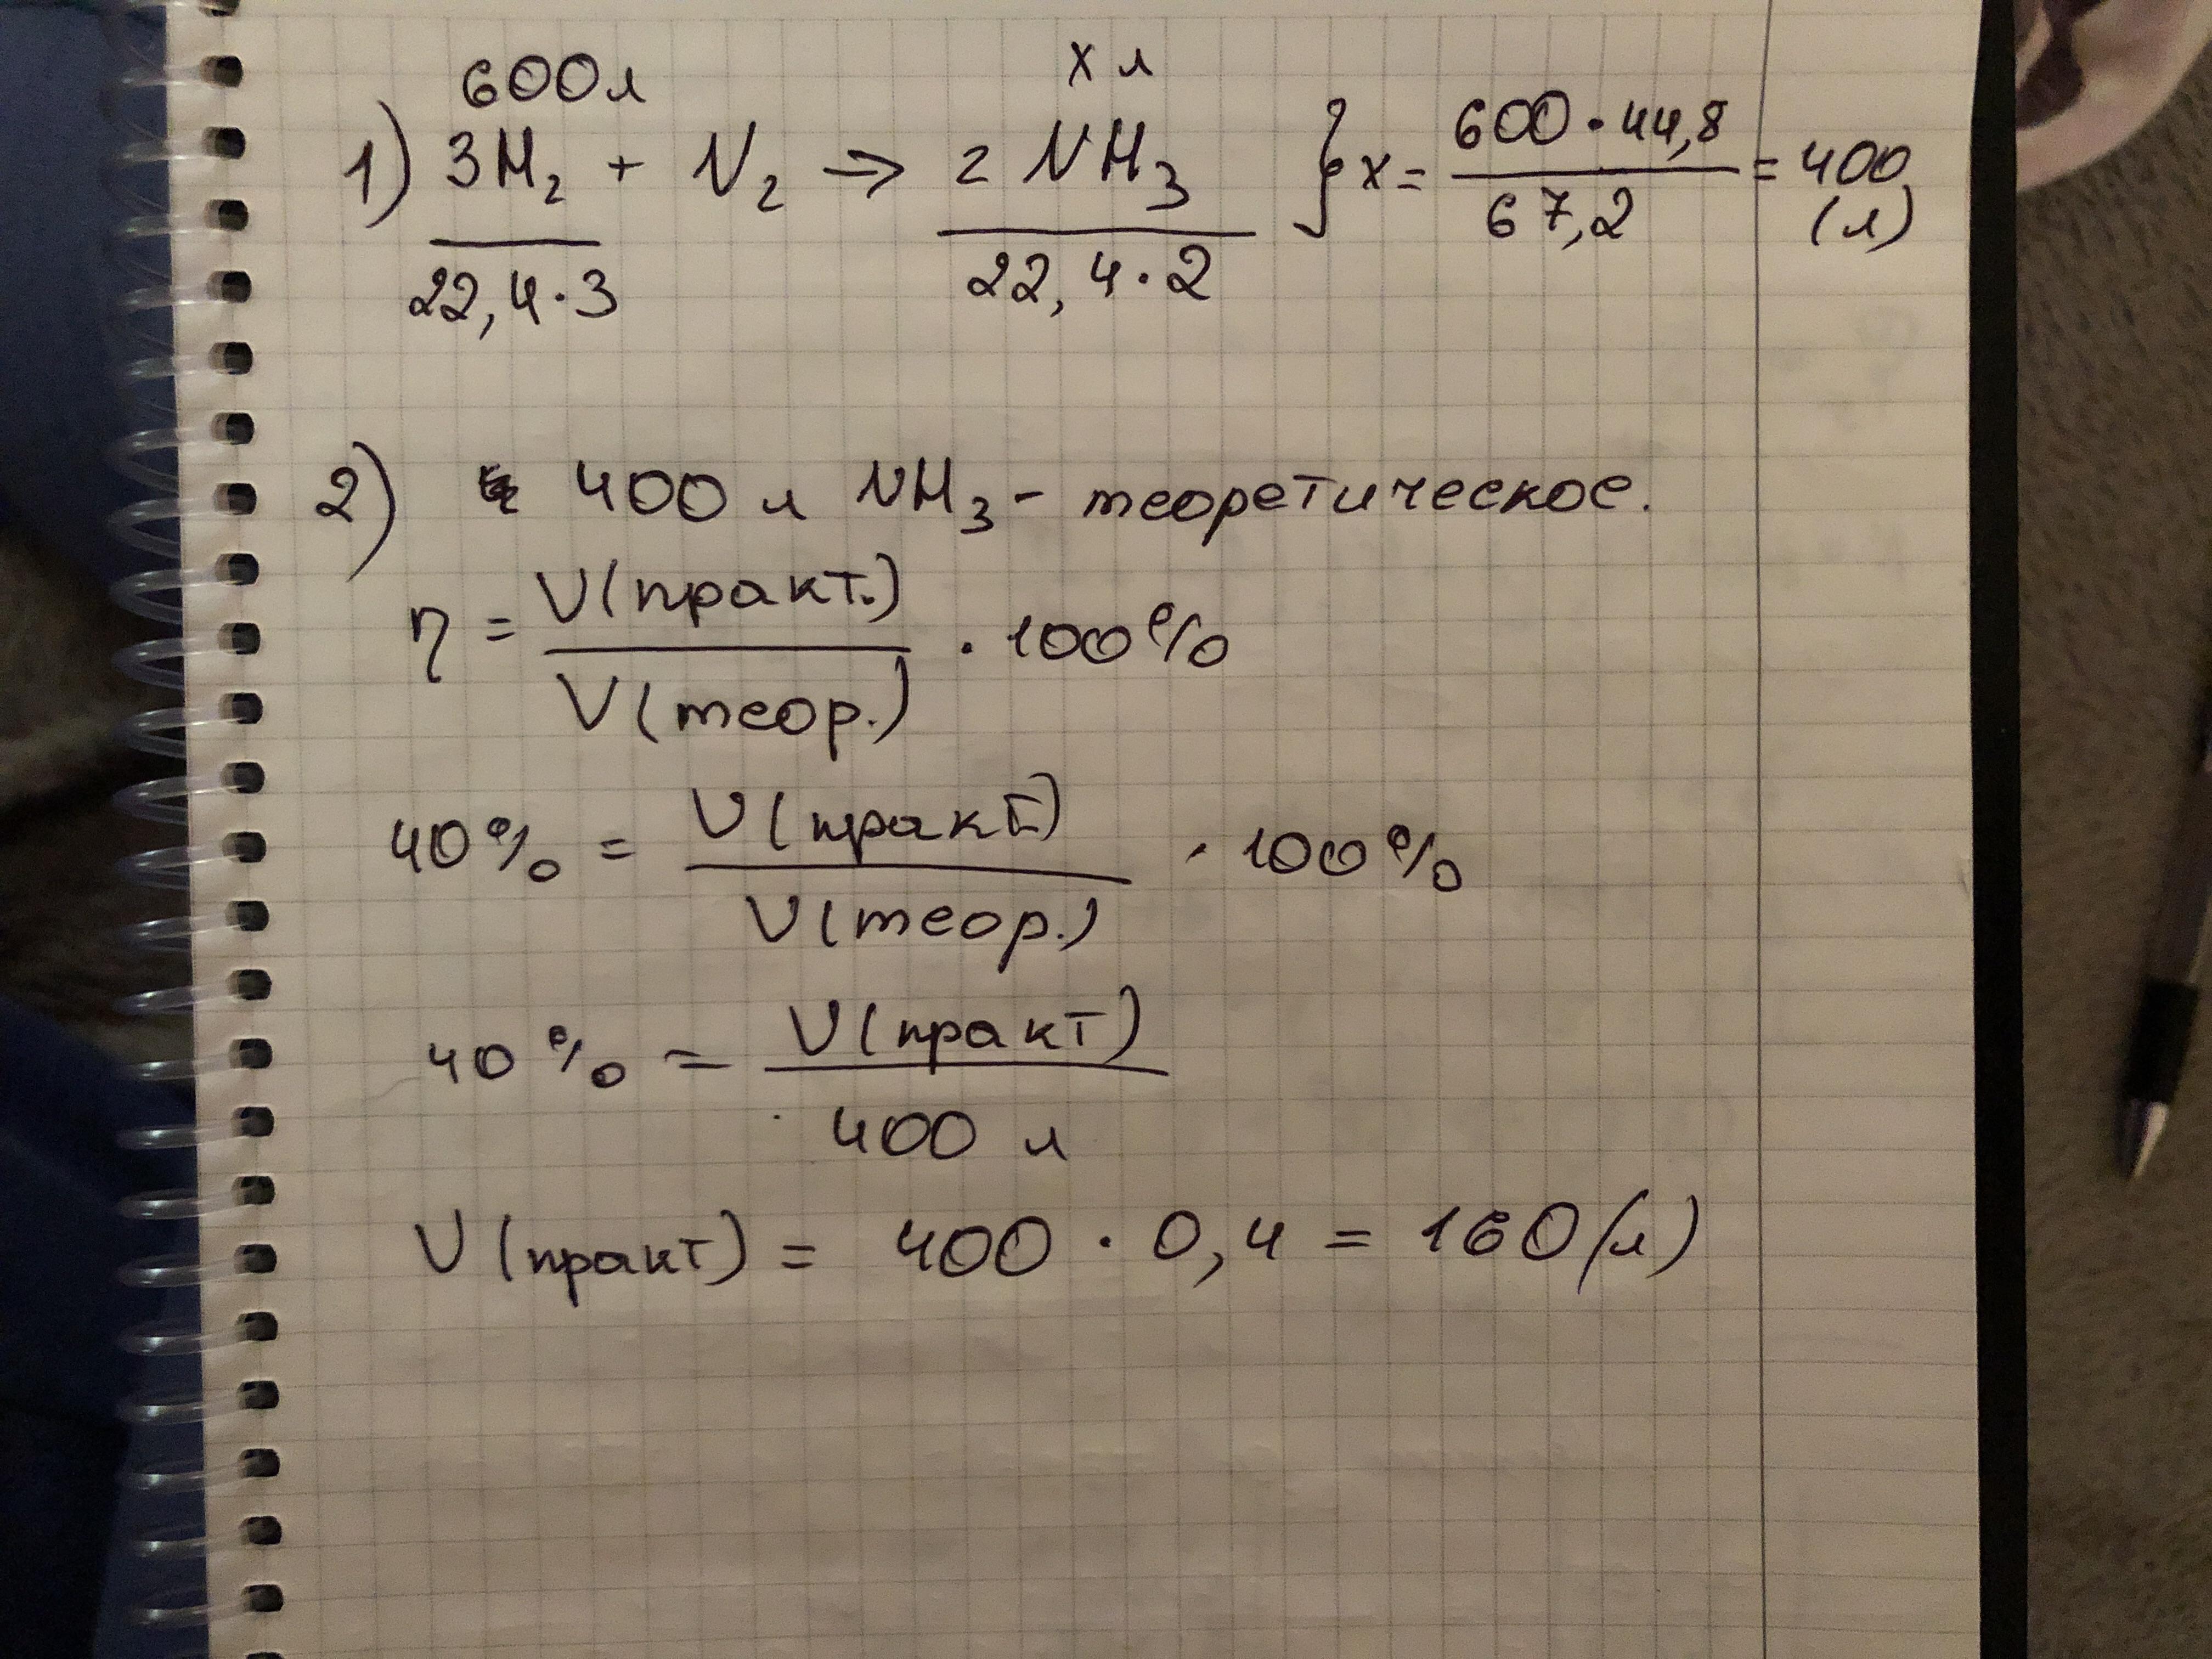 600л х л
1) 3H₂ + N₂ => 2 NH₃ } x = 600 · 44,8 / 67,2 = 400 (л)
22,4·3 22,4·2
2) 400 л NH₃ - теоретическое.
η = V(практ.) / V(теор.) · 100%
40% = V(практ.) / V(теор.) · 100%
40% = V(практ) / 400 л
V(практ) = 400 · 0,4 = 160(л)